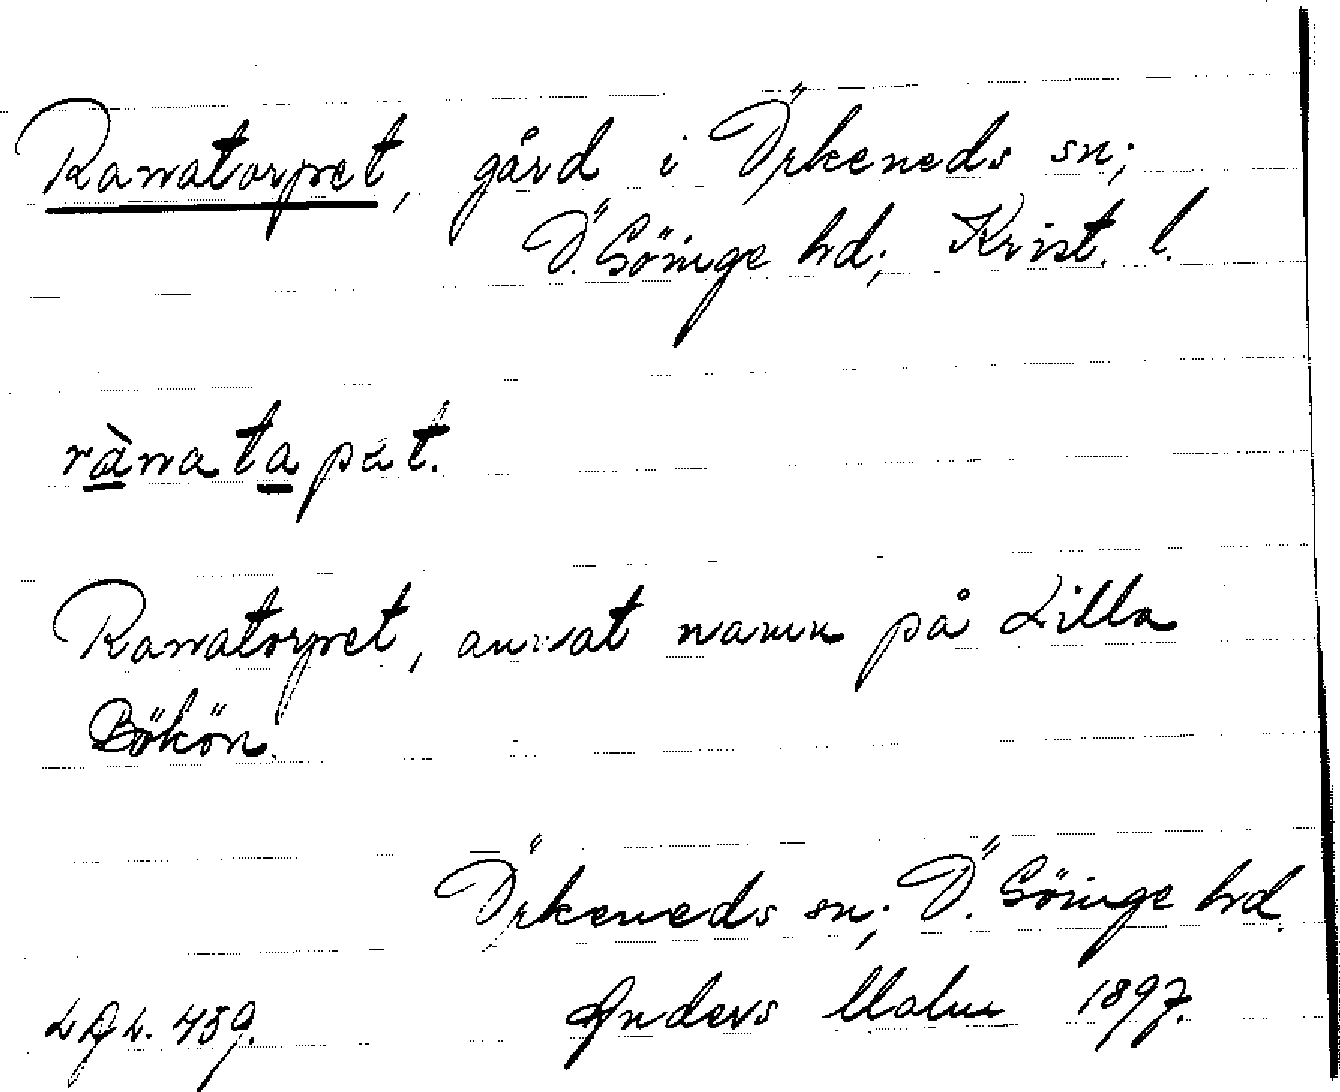 Ranatorpet, gård i Örkeneds sn;
Ö. Göinge hd; Krist. l.
ràna tapet.
Ranatorpet, annat namn på Lilla
Bökön.
Örkeneds sn; Ö. Göinge hd.
459. Anders Malm 1897.